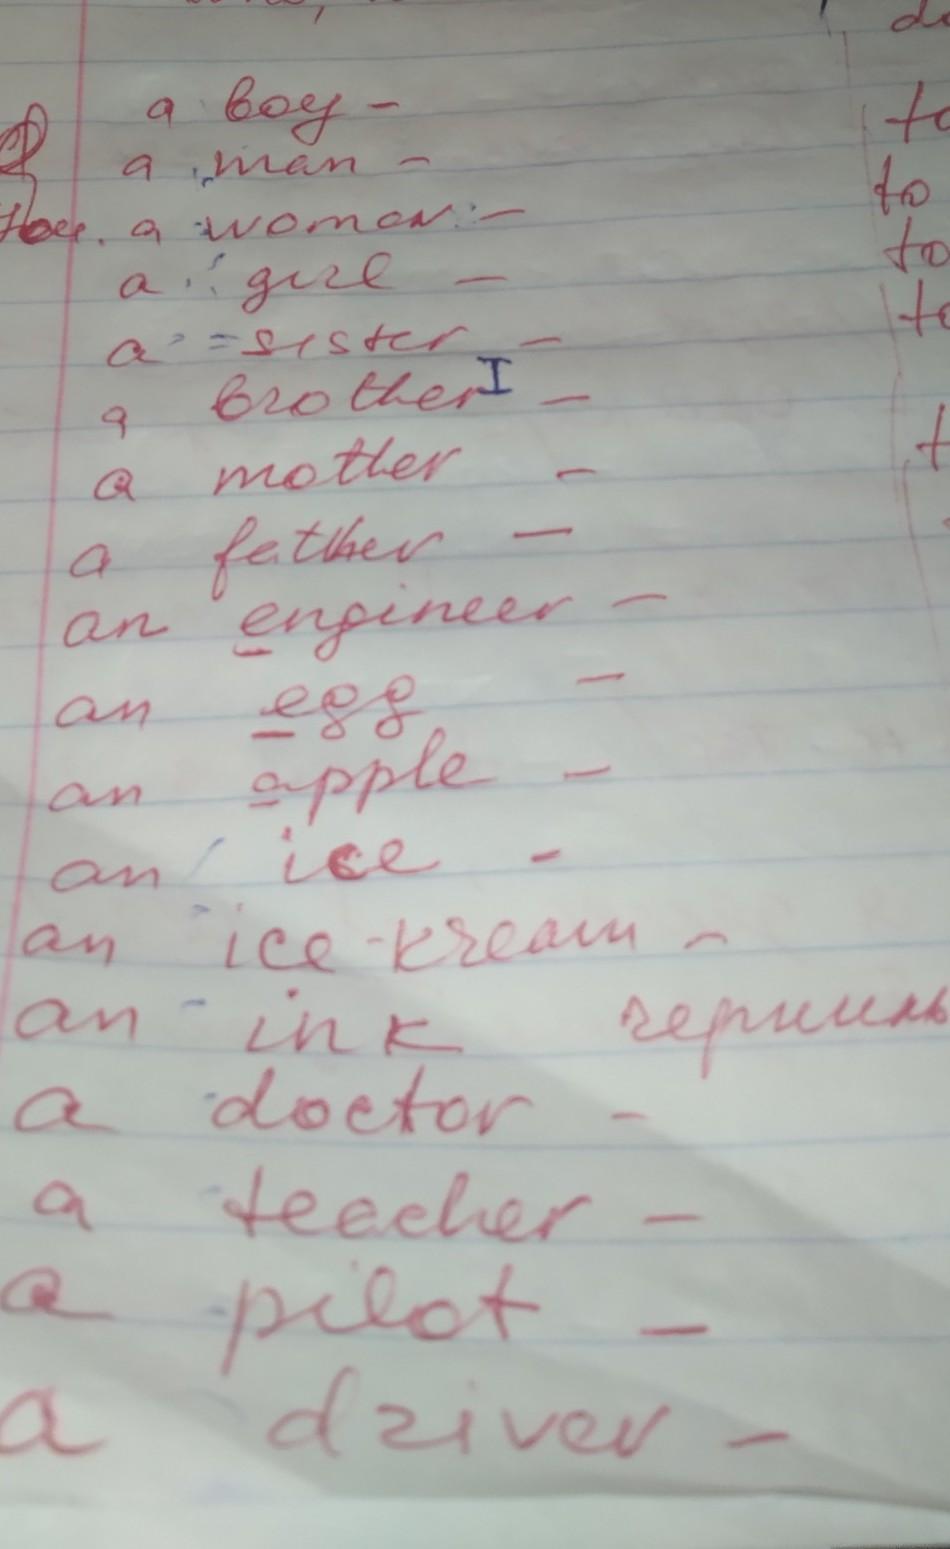 a boy -
a man -
a woman -
a girl -
a sister -
a brother I -
a mother -
a father -
an engineer -
an egg -
an apple -
an ice -
an ice-kream -
an ink чернила
a doctor -
a teacher -
a pilot -
a driver -
to
to
to
to